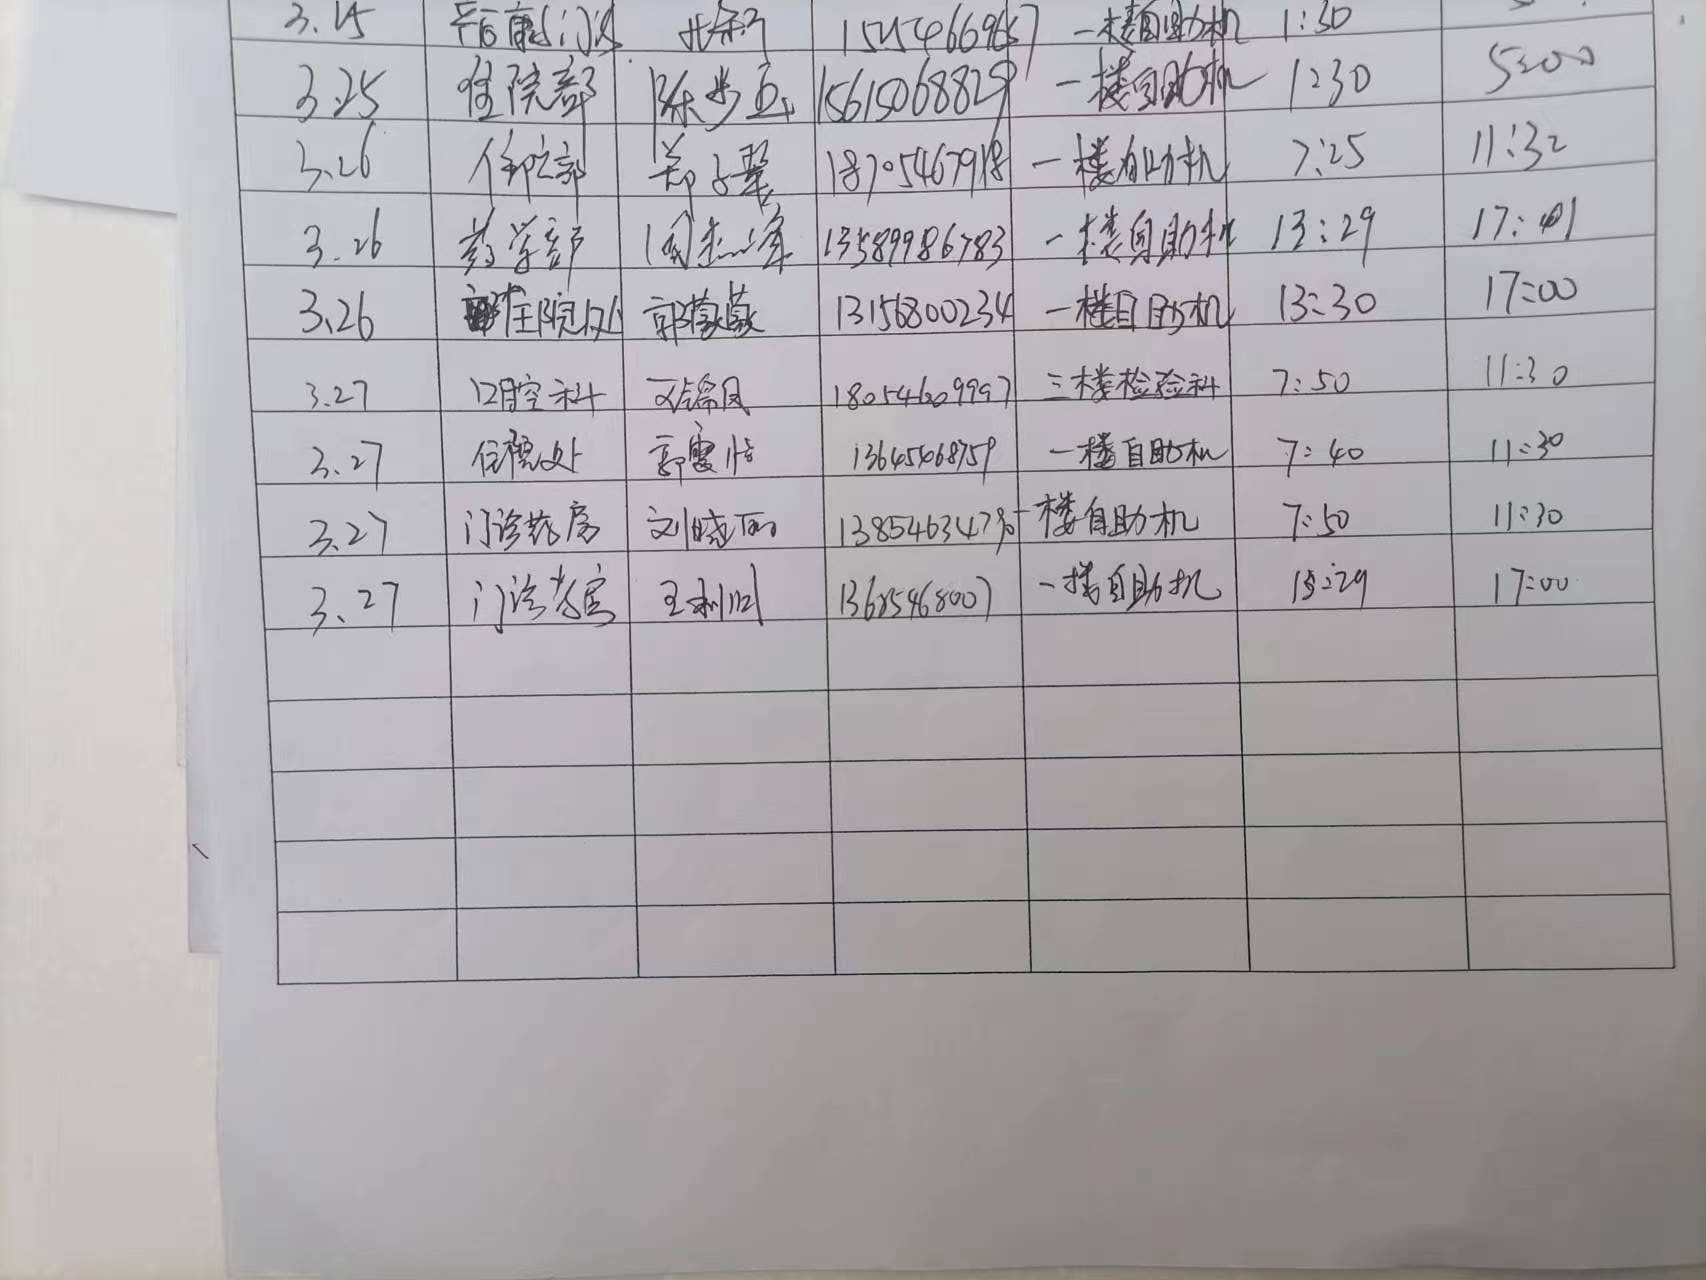 3.25 门诊 一楼自助机 1:30
3.25 住院部 15615068829 一楼自助机 1:30 5:00
3.26 住院部 郑 18705467918 一楼自助机 7:25 11:32
3.26 药学部 13589986783 一楼自助机 13:29 17:01
3.26 住院处 郭蒙蒙 13156800234 一楼自助机 13:30 17:00
3.27 口腔科 18054609997 三楼检验科 7:50 11:30
3.27 住院处 郭 13645468759 一楼自助机 7:40 11:30
3.27 门诊药房 刘晓丽 一楼自助机 7:50 11:30
3.27 门诊药房 王利 13685468007 一楼自助机 17:00